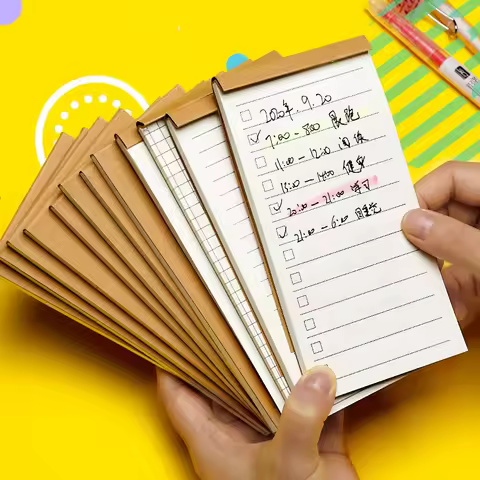 2020年.9.20
7:00-8:00 晨跑
11:00-12:00 阅读
健身
20:00-21:00 学习
21:00-6:00 睡觉